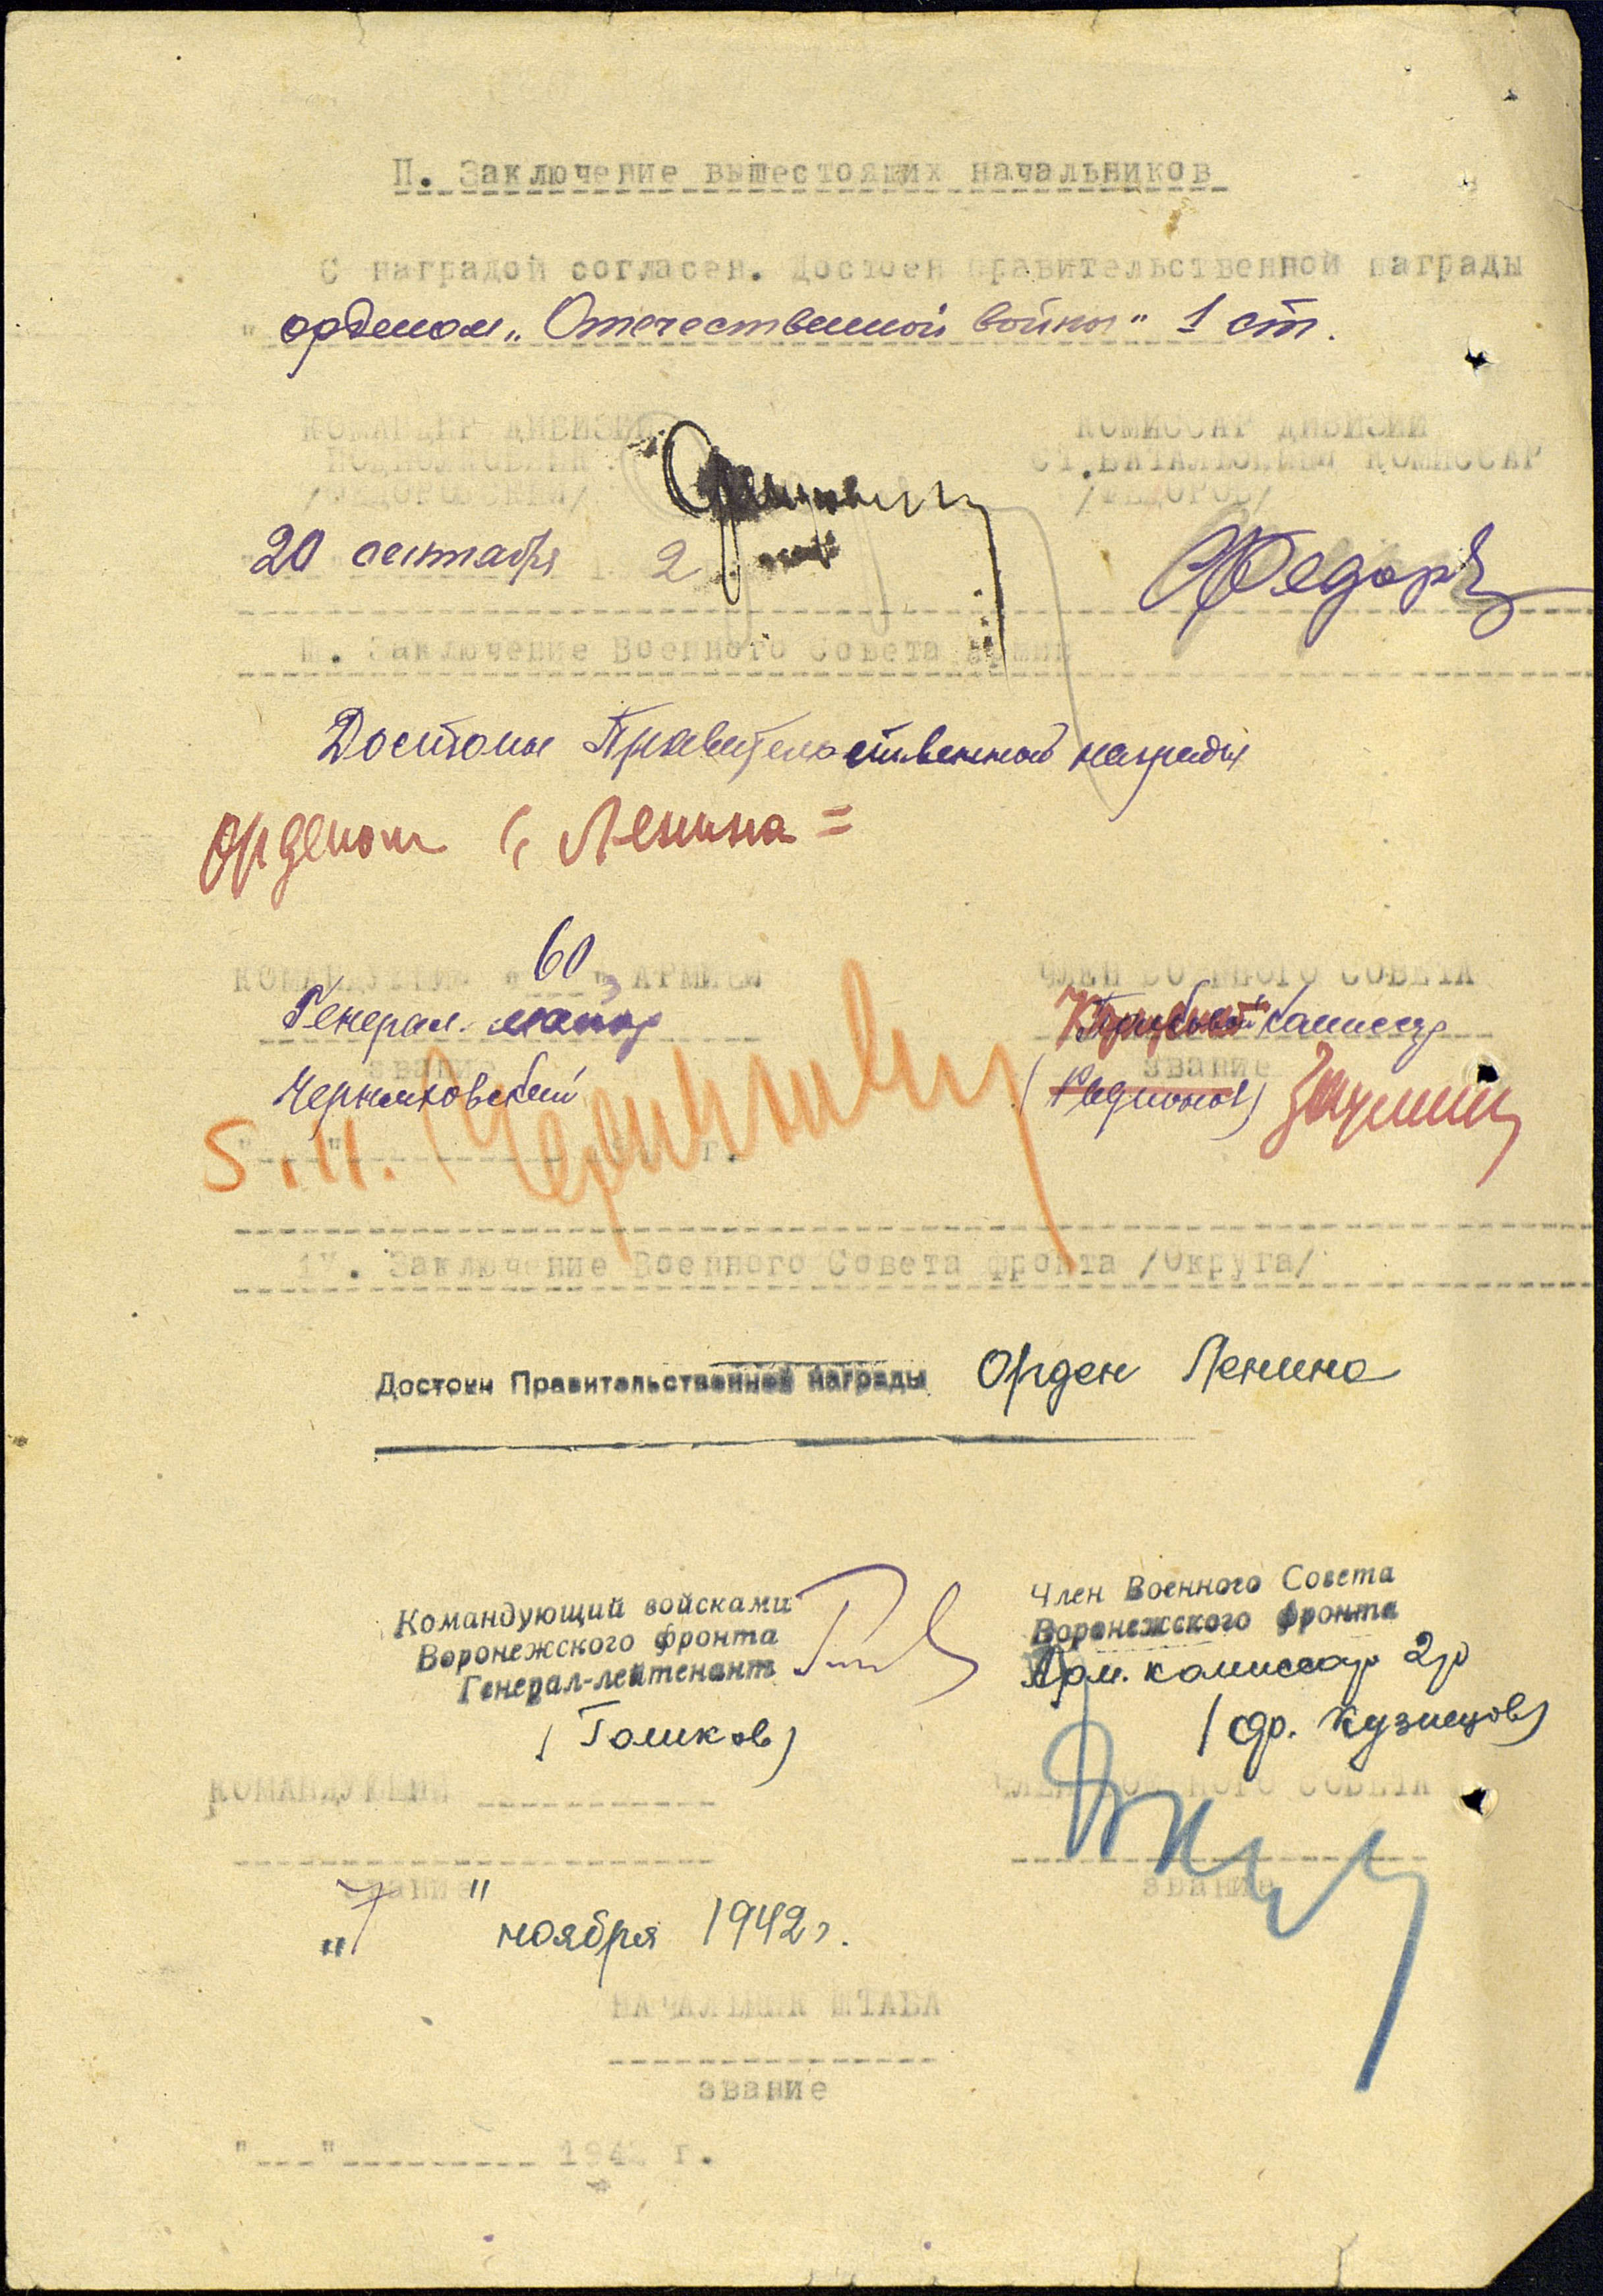 П. Заключение вышестоящих начальников
С наградой согласен. Достоен правительственной награды
орденом „Отечественной войны" 1 ст.
КОМАНДИР ДИВИЗИИ
ПОДПОЛКОВНИК
КОМИССАР ДИВИЗИИ
СТ.БАТАЛЬОННЫЙ КОМИССАР
/ФЕДОРОВ/
20 сентября 2
Ш. Заключение Военного Совета Армии
Достоин Правительственной награды
орденом „Ленина=
КОМАНДУЮЩИЙ "60" АРМИЕЙ
Генерал-майор
звание
Черняховский
5.11.
ЧЛЕН ВОЕННОГО СОВЕТА
комиссар
звание
г.
1У. Заключение Военного Совета фронта /Округа/
Достоин Правительственной награды Орден Ленина
Командующий войсками
Воронежского фронта
Генерал-лейтенант
(Голиков)
Член Военного Совета
Воронежского фронта
Арм. комиссар 2р
(ф. Кузнецов)
КОМАНДУЮЩИЙ
звание
ЧЛЕН ВОЕННОГО СОВЕТА
звание
„7" ноября 1942г.
НАЧАЛЬНИК ШТАБА
звание
"___"_________ 1942 г.